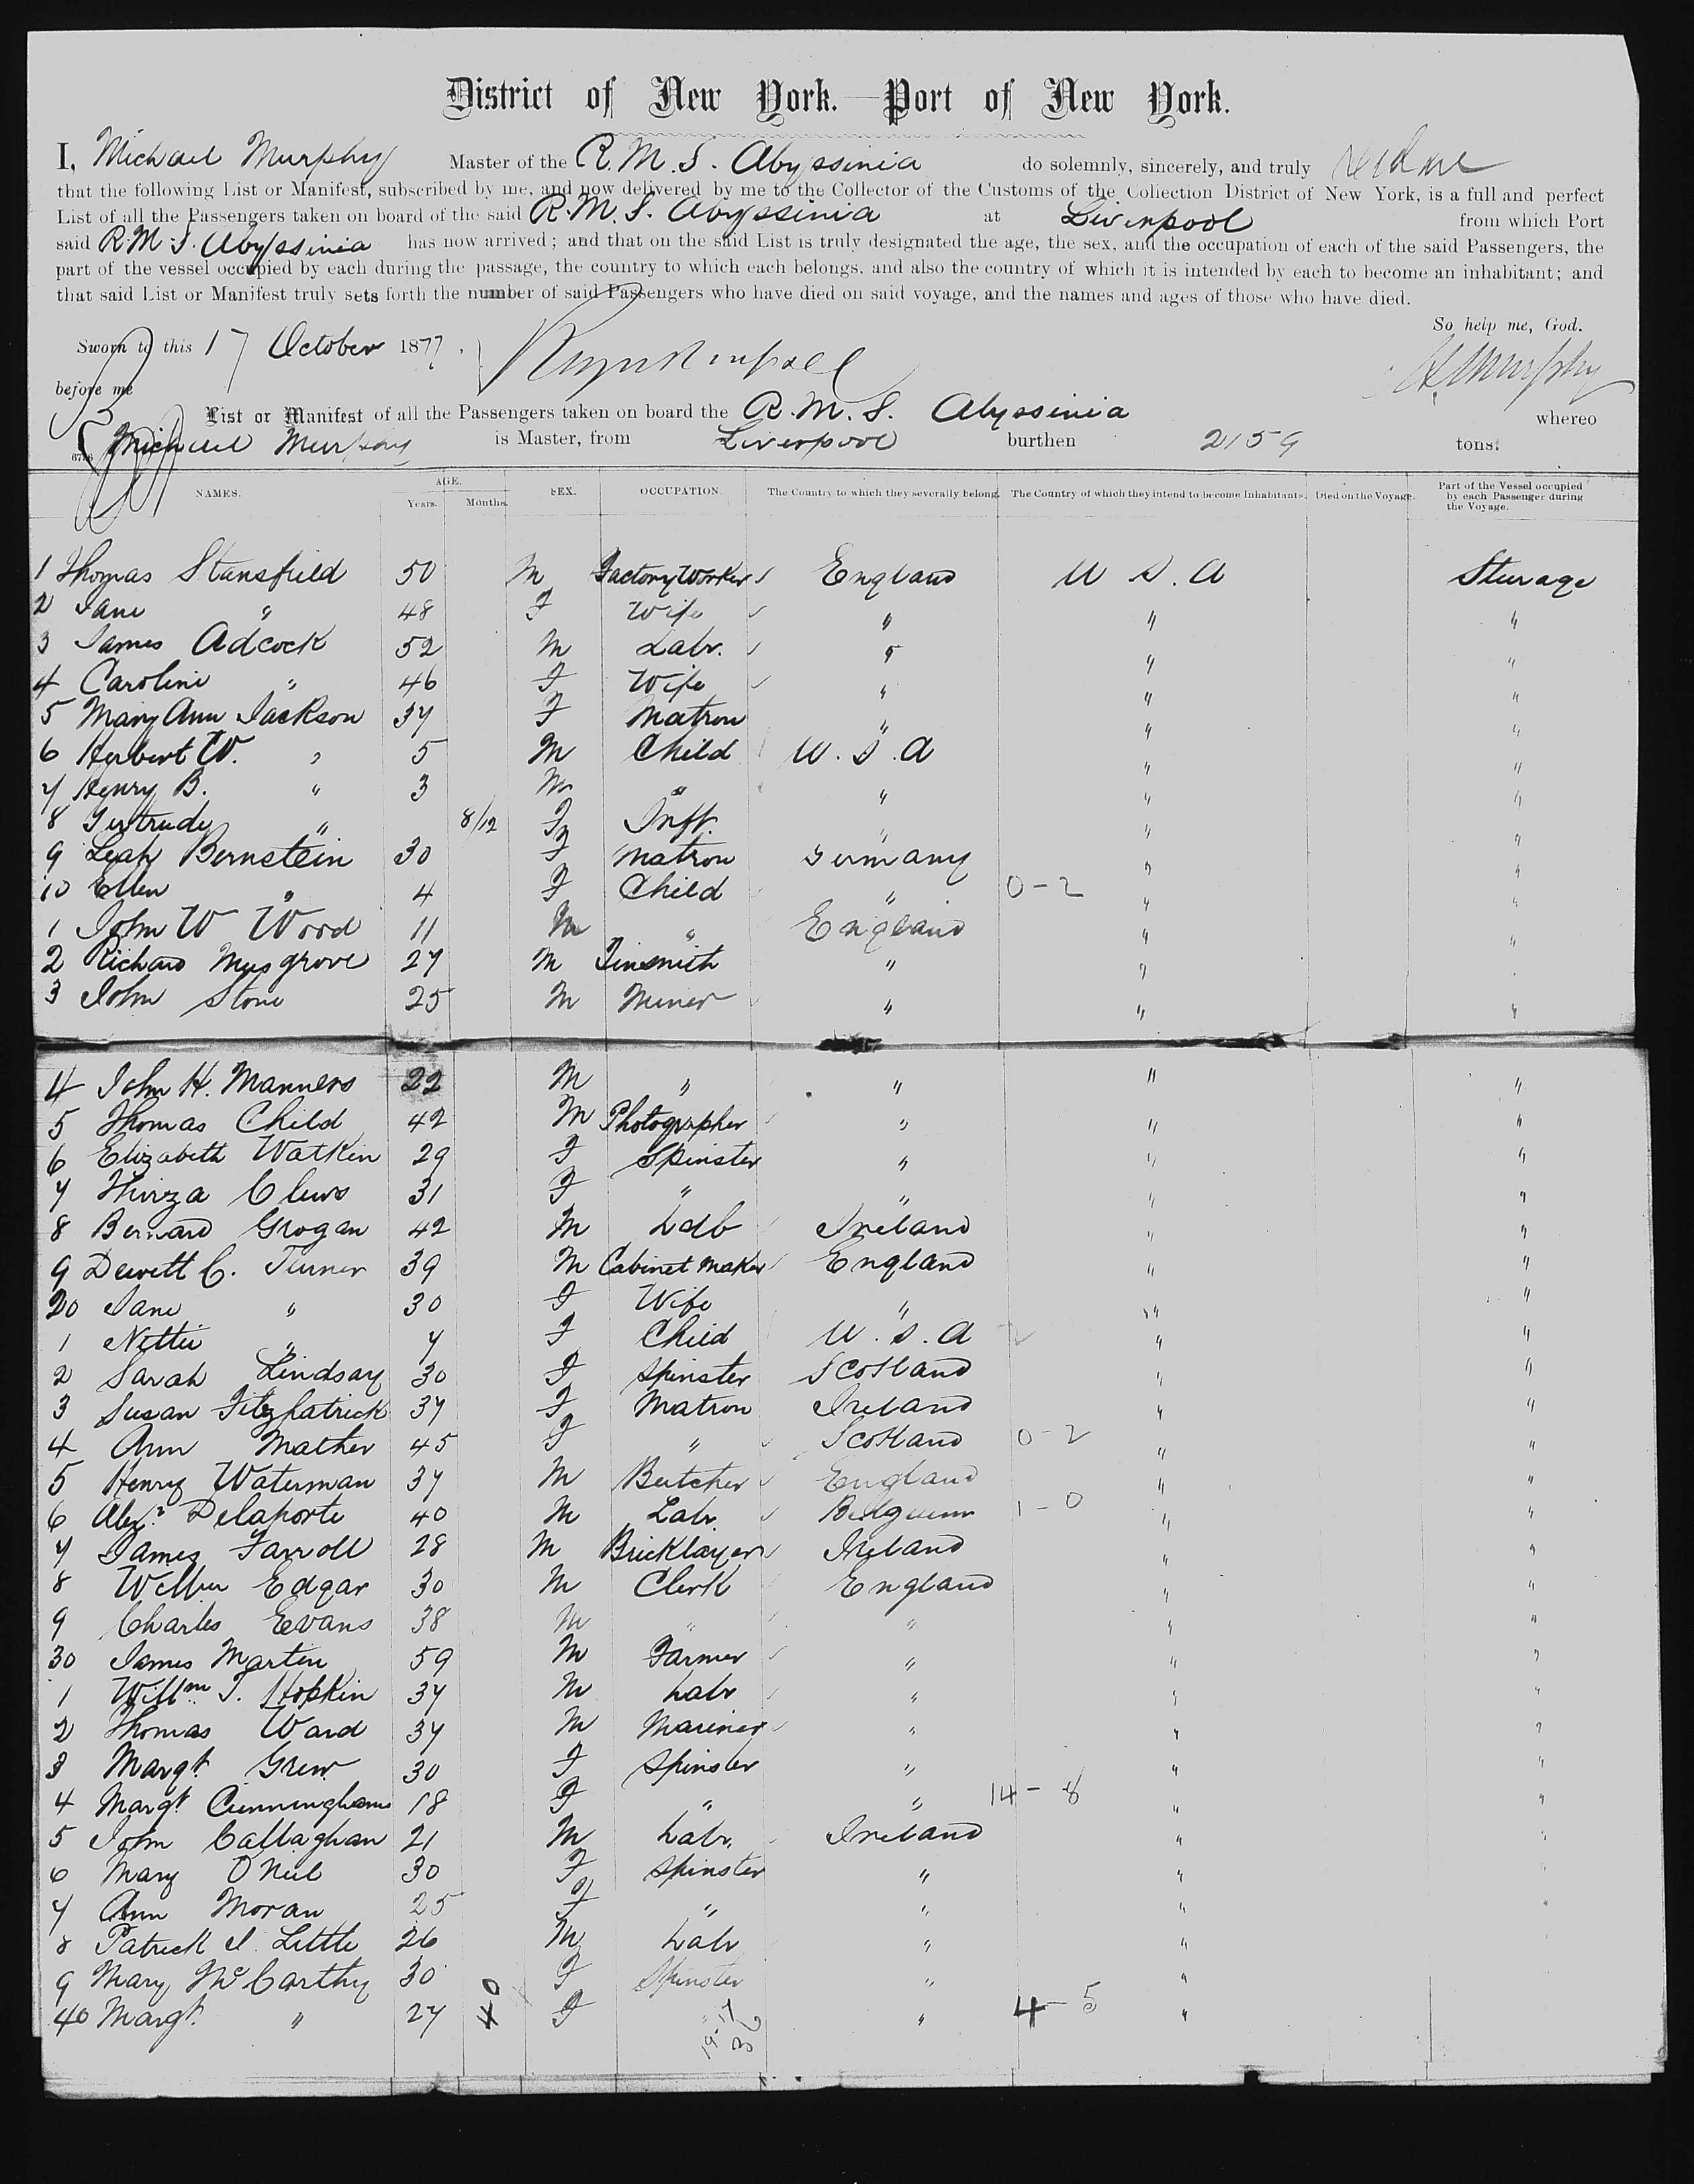 District of New York.—Port of New York.
I, Michael Murphy Master of the R.M.S. Abyssinia do solemnly, sincerely, and truly
that the following List or Manifest, subscribed by me, and now delivered by me to the Collector of the Customs of the Collection District of New York, is a full and perfect
List of all the Passengers taken on board of the said R.M.S. Abyssinia at Liverpool from which Port
said R.M.S. Abyssinia has now arrived; and that on the said List is truly designated the age, the sex, and the occupation of each of the said Passengers, the
part of the vessel occupied by each during the passage, the country to which each belongs, and also the country of which it is intended by each to become an inhabitant; and
that said List or Manifest truly sets forth the number of said Passengers who have died on said voyage, and the names and ages of those who have died.
So help me, God.
Sworn to this 17 October 1877.
before me
Murphy
List or Manifest of all the Passengers taken on board the R.M.S. Abyssinia whereo
Michael Murphy is Master, from Liverpool burthen 2159 tons.
NAMES. AGE. Years. Months. SEX. OCCUPATION. The Country to which they severally belong. The Country of which they intend to become Inhabitants. Died on the Voyage. Part of the Vessel occupied by each Passenger during the Voyage.
1 Thomas Stansfield 50 M Factory Worker England U S. A Sturage
2 Jane " 48 F Wife " " "
3 James Adcock 52 M Labr. " " "
4 Caroline " 46 F Wife " " "
5 Mary Ann Jackson 37 F Matron " " "
6 Herbert W. " 5 M Child U.S.A " "
7 Henry B. " 3 M " " " "
8 Gertrude " 8/12 F Inft. " " "
9 Leah Bernstein 30 F Matron Germany " "
10 Ellen " 4 F Child " 0-2 " "
1 John W Wood 11 M " England " "
2 Richard Musgrove 27 M Tinsmith " " "
3 John Stone 25 M Miner " " "
4 John H. Manners 22 M " " " "
5 Thomas Child 42 M Photographer " " "
6 Elizabeth Watkin 29 F Spinster " " "
7 Thirza Clews 31 F " " " "
8 Bernard Grogan 42 M Lab Ireland " "
9 Dewett C. Turner 39 M Cabinet Maker England " "
20 Jane " 30 F Wife " " "
1 Nettie " 7 F Child U.S.A " "
2 Sarah Lindsay 30 F Spinster Scotland " "
3 Susan Fitzpatrick 37 F Matron Ireland " "
4 Ann Mather 45 F " Scotland 0-2 " "
5 Henry Waterman 37 M Butcher England " "
6 Alexr. Delaporte 40 M Labr. Belguim 1-0 " "
7 James Farroll 28 M Bricklayer Ireland " "
8 Wilbur Edgar 30 M Clerk England " "
9 Charles Evans 38 M " " " "
30 James Martin 59 M Farmer " " "
1 Willm T. Hopkin 37 M Labr " " "
2 Thomas Ward 37 M Mariner " " "
3 Margt. Grew 30 F Spinster " " "
4 Margt. Cunningham 18 F " " 14-8 " "
5 John Callaghan 21 M Labr. Ireland " "
6 Mary O'Neil 30 F Spinster " " "
7 Ann Moran 25 F " " " "
8 Patrick J. Little 26 M Labr " "
9 Mary McCarthy 30 F Spinster " "
40 Margt. " 27 40 F " " 4-5 "